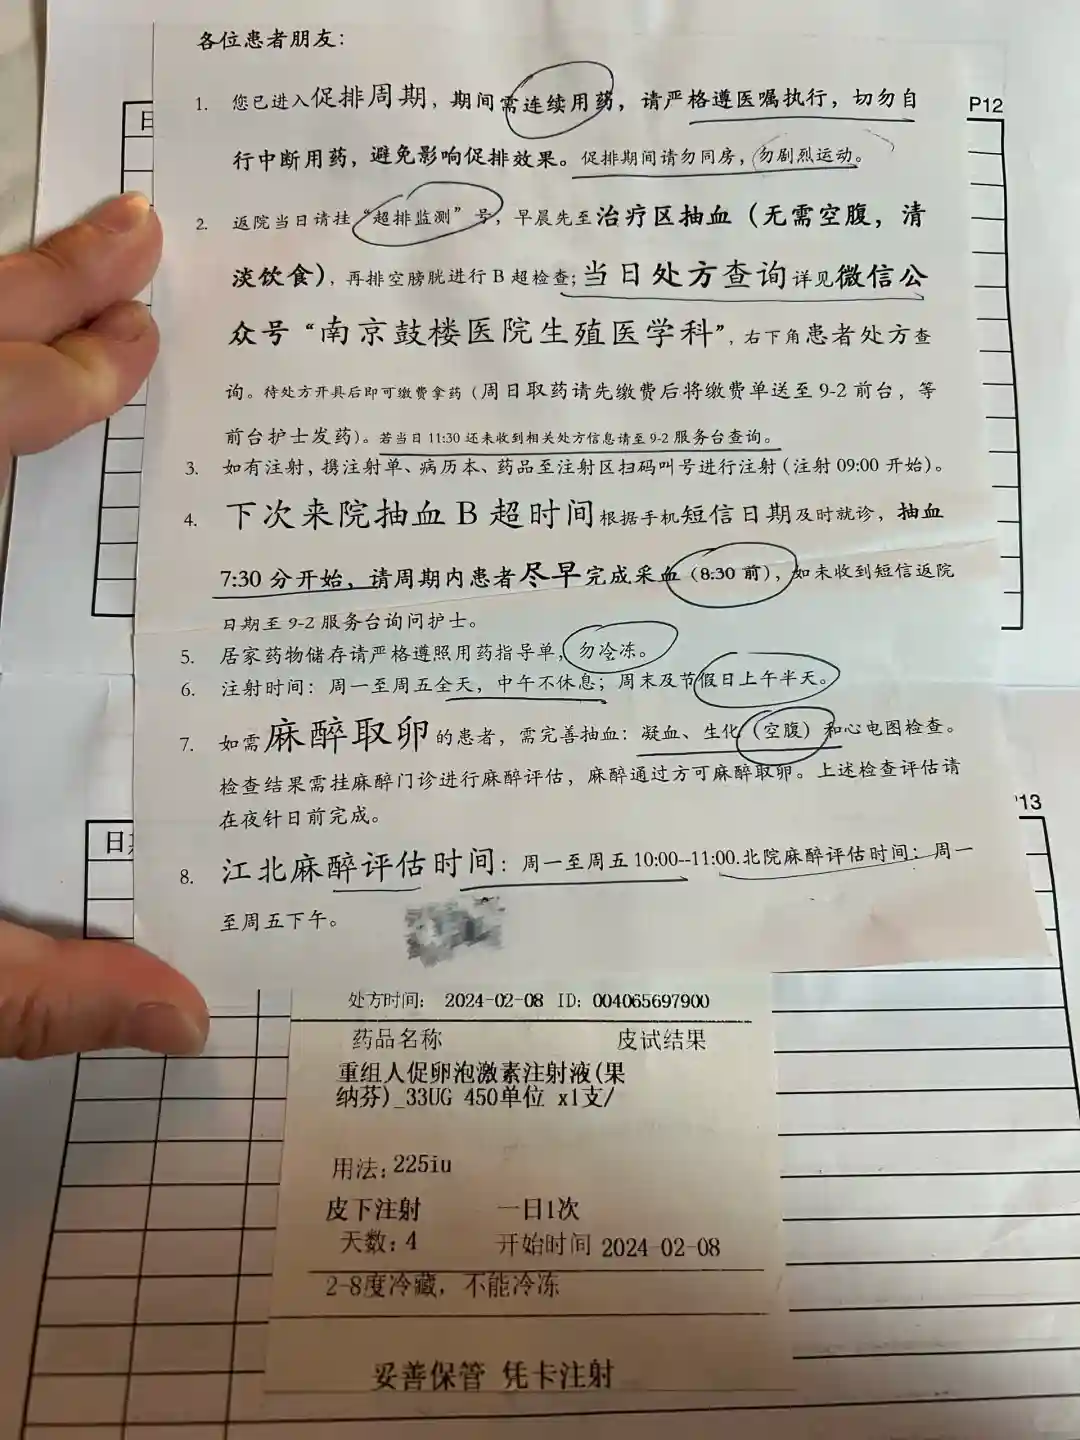 各位患者朋友：
P12
1. 您已进入促排周期，期间需连续用药，请严格遵医嘱执行，切勿自
行中断用药，避免影响促排效果。促排期间请勿同房，勿剧烈运动。
2. 返院当日请挂“超排监测”号，早晨先至治疗区抽血（无需空腹，清
淡饮食），再排空膀胱进行B超检查；当日处方查询详见微信公
众号“南京鼓楼医院生殖医学科”，右下角患者处方查
询。待处方开具后即可缴费拿药（周日取药请先缴费后将缴费单送至9-2前台，等
前台护士发药）。若当日11:30还未收到相关处方信息请至9-2服务台查询。
3. 如有注射，携注射单、病历本、药品至注射区扫码叫号进行注射（注射09:00开始）。
4. 下次来院抽血B超时间根据手机短信日期及时就诊，抽血
7:30分开始，请周期内患者尽早完成采血（8:30前），如未收到短信返院
日期至9-2服务台询问护士。
5. 居家药物储存请严格遵照用药指导单，勿冷冻。
6. 注射时间：周一至周五全天，中午不休息；周末及节假日上午半天。
7. 如需麻醉取卵的患者，需完善抽血：凝血、生化（空腹）和心电图检查。
检查结果需挂麻醉门诊进行麻醉评估，麻醉通过方可麻醉取卵。上述检查评估请
在夜针日前完成。
13
日
8. 江北麻醉评估时间：周一至周五10:00--11:00.北院麻醉评估时间：周一
至周五下午。
处方时间： 2024-02-08 ID：004065697900
药品名称 皮试结果
重组人促卵泡激素注射液(果
纳芬)_33UG 450单位 x1支/
用法：225iu
皮下注射 一日1次
天数：4 开始时间 2024-02-08
2-8度冷藏，不能冷冻
妥善保管 凭卡注射